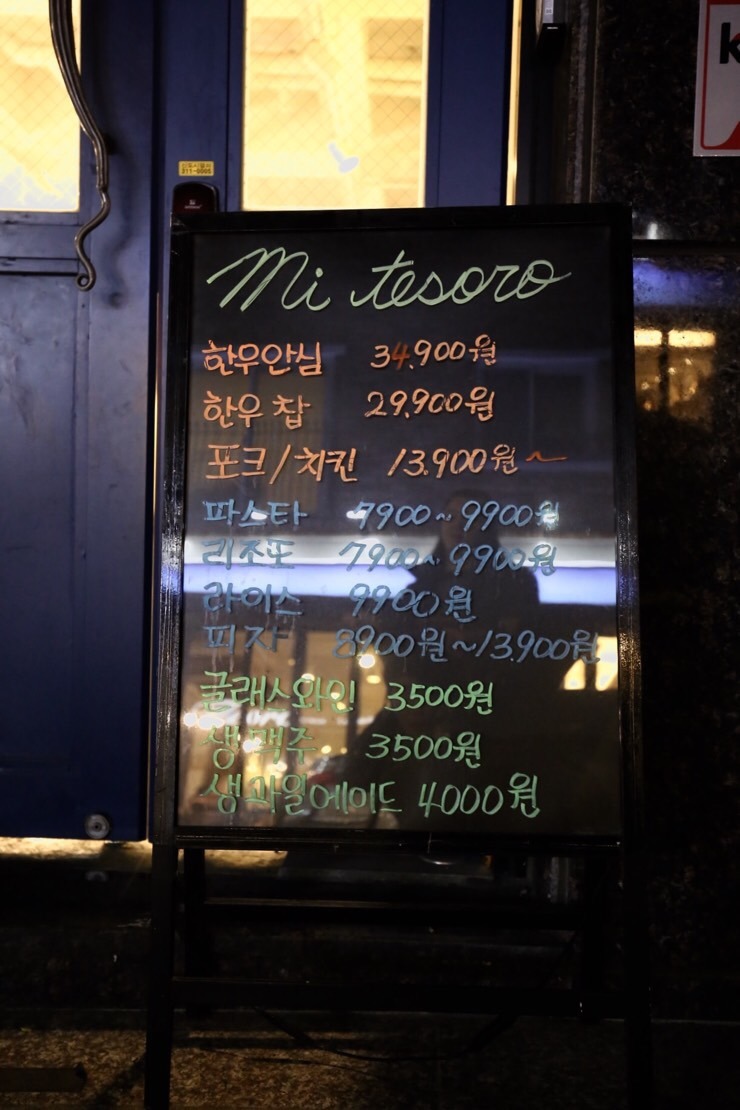 311-5005
k
Mi tesoro
한우안심 34,900원
한우 찹 29,900원
포크/치킨 13,900원~
파스타 7900~9900원
리조또 7900~9900원
라이스 9900원
피자 8900원~13,900원
글래스와인 3500원
생맥주 3500원
생과일에이드 4000원